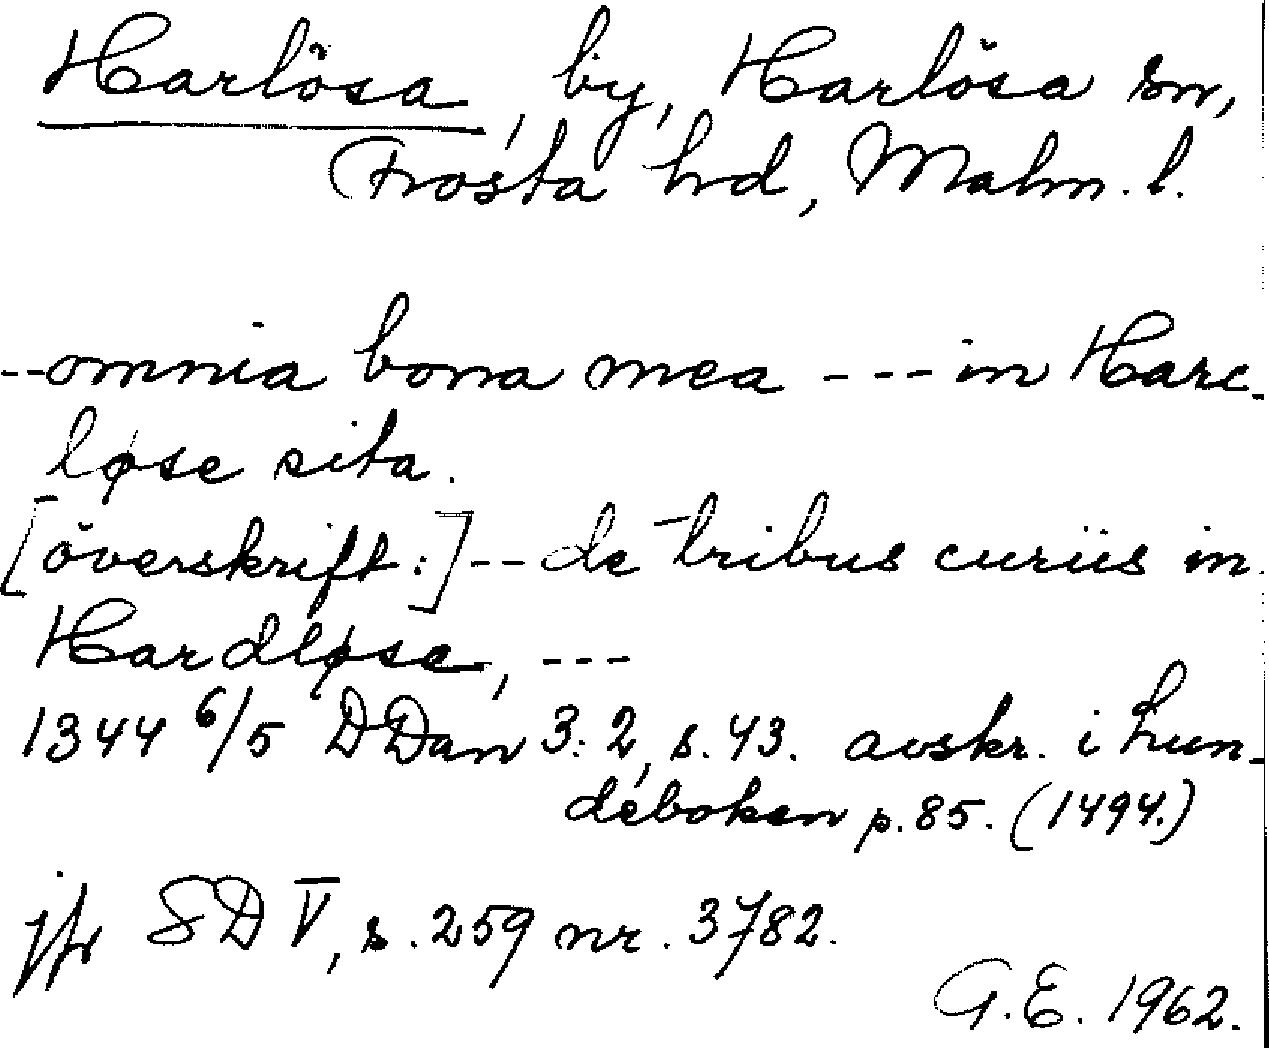 Harlösa, by, Harlösa sn,
Frosta hrd, Malm. l.
--omnia bona mea --- in Hare-
løse sita.
[överskrift:]-- de tribus curiis in
Hardløse, ---
1344 6/5 DDan 3:2, s. 43. avskr. i Lun-
deboken p. 85. (1494.)
jfr SD V, s. 259 nr. 3782.
G.E. 1962.